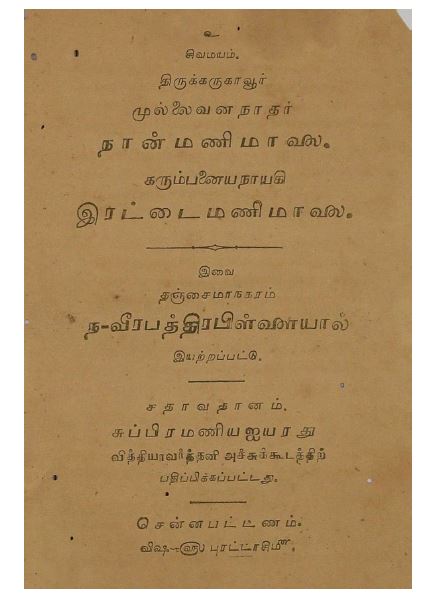 உ
சிவமயம்.
திருக்கருகாவூர்
முல்லைவனநாதர்
நான்மணிமாலை.
கரும்பனையநாயகி
இரட்டைமணிமாலை.
இவை
தஞ்சைமாநகரம்
ந-வீரபத்திரபிள்ளையால்
இயற்றப்பட்டு.
சதாவதானம்.
சுப்பிரமணியஐயரது
வித்தியாவர்த்தனி அச்சுக்கூடத்திற்
பதிப்பிக்கப்பட்டது.
சென்னபட்டணம்.
விஷு௵ புரட்டாசி௴.